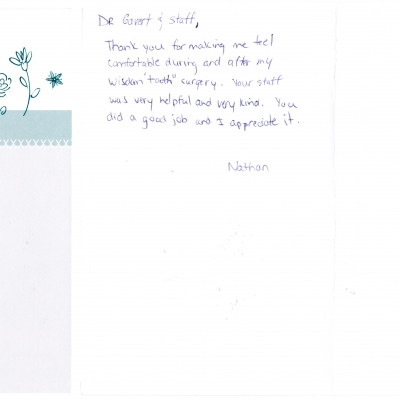 DR Govert & staff,
Thank you for making me feel
comfortable during and after my
wisdom "tooth" surgery. Your staff
was very helpful and very kind. You
did a good job and I appreciate it.
Nathan